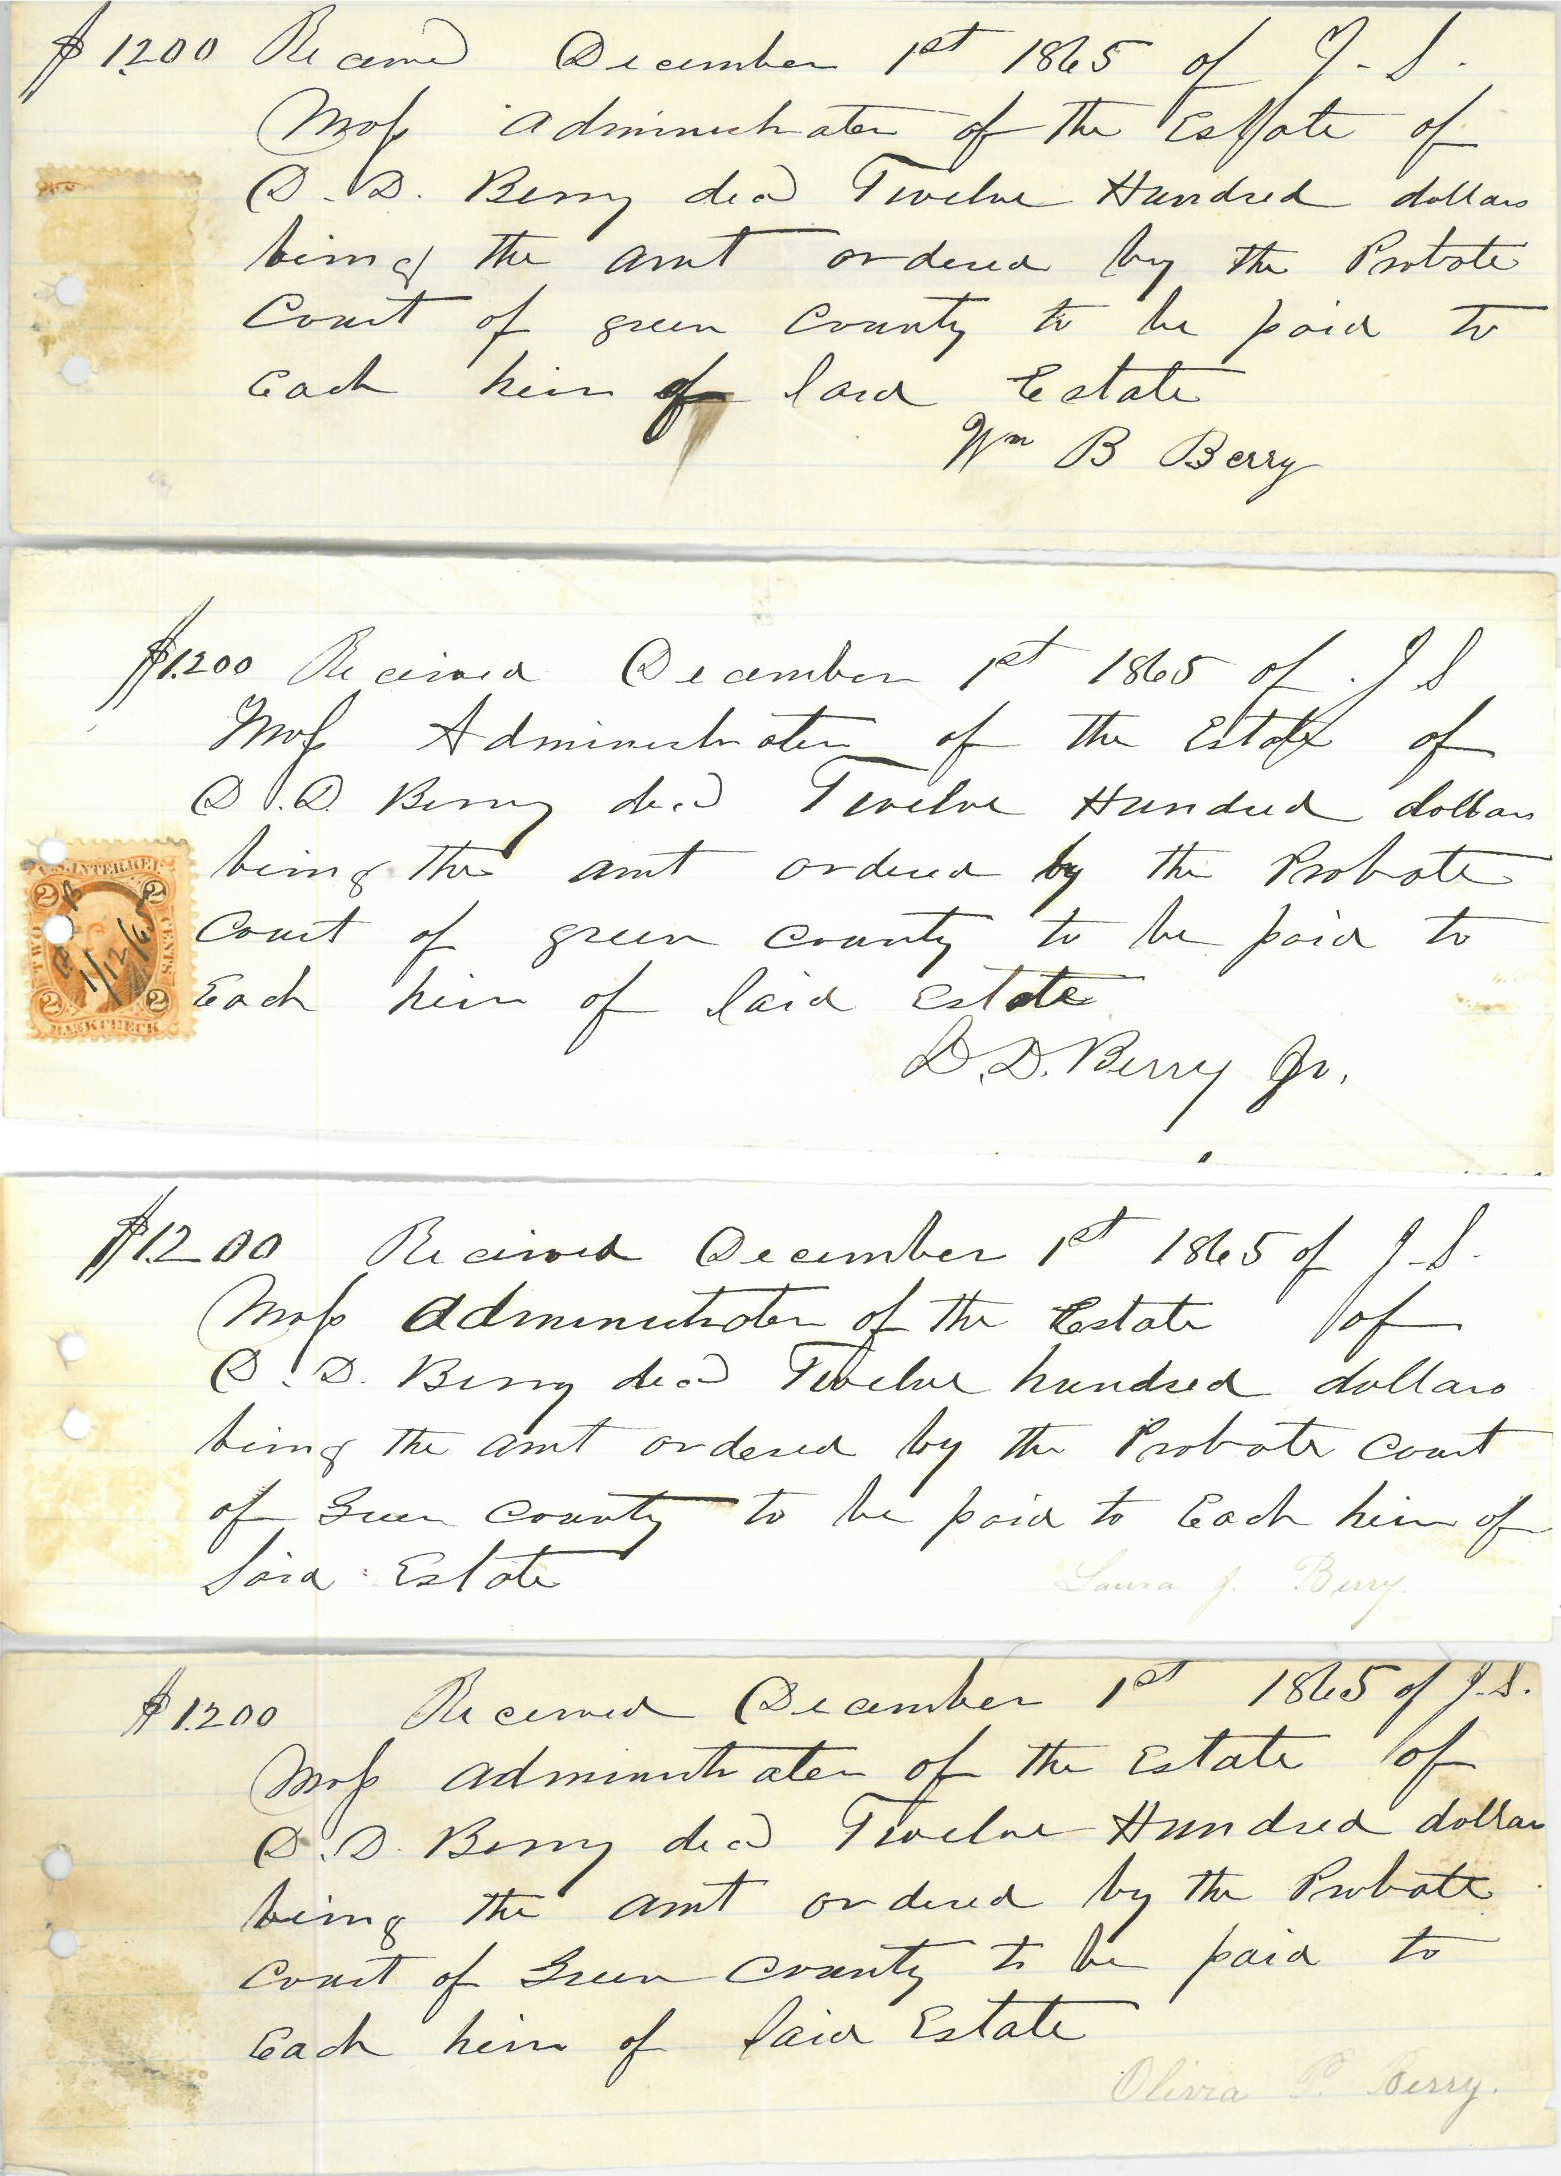 $1200 Received December 1st 1865 of J. S.
Moss Administrater of the Estate of
D. D. Berry decd Twelve Hundred dollars
being the amt ordered by the Probate
Court of green County to be paid to
Each heir of said Estate
Wm B Berry
$1200 Received December 1st 1865 of J S
Moss Administrater of the Estate of
D. D. Berry decd Twelve Hundred dollars
being the amt ordered by the Probate
Court of green County to be paid to
Each heir of said Estate
D. D. Berry Jr.
U.S. INTER. REV.
2 2
TWO CENTS
1/12/65
2 2
BANK CHECK
$1200 Received December 1st 1865 of J. S.
Moss administrater of the Estate of
D. D. Berry decd Twelve hundred dollars
being the amt ordered by the Probate Court
of Green County to be paid to Each heir of
said Estate
Laura J. Berry.
$1200 Received December 1st 1865 of J. S.
Moss administrater of the Estate of
D. D. Berry decd Twelve Hundred dollars
being the amt ordered by the Probate
Court of Green County to be paid to
Each heir of said Estate
Olivia P. Berry.